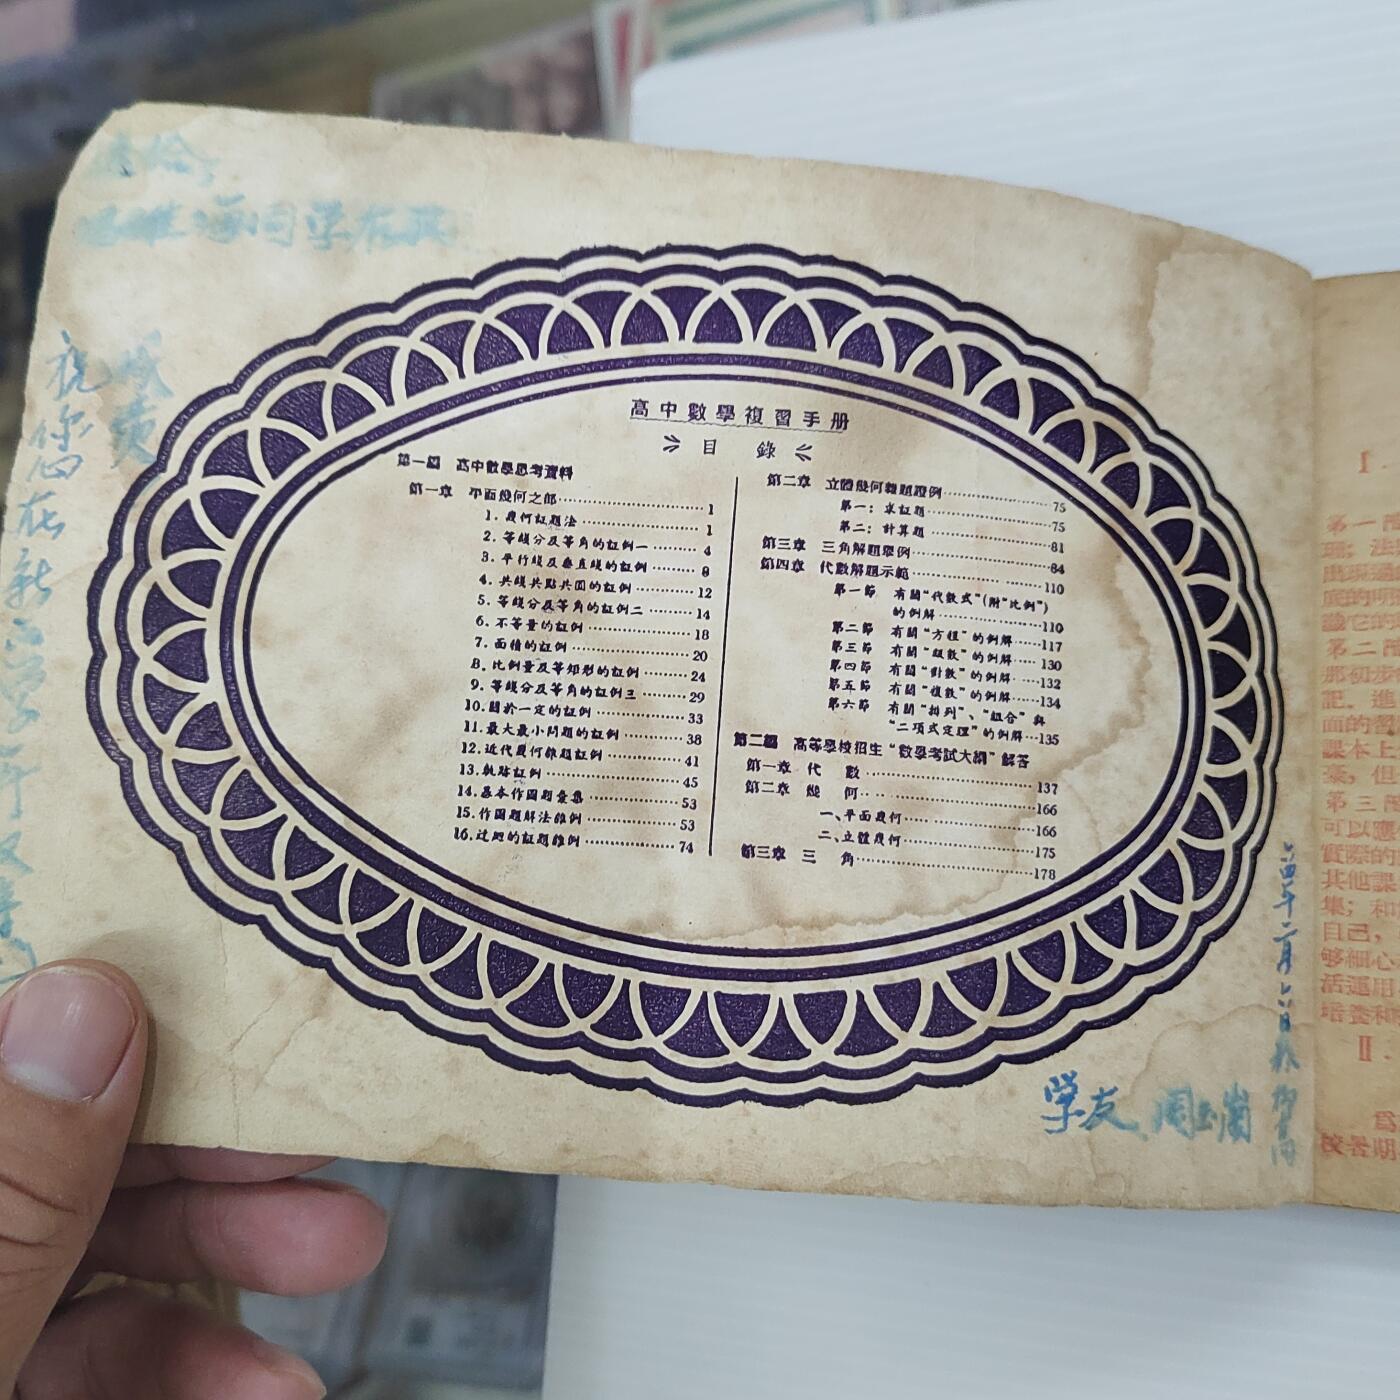 同學存
祝你在新
高中數學複習手册
目錄
第一編 高中數學思考資料
第一章 平面幾何之部 1
1. 幾何証題法 1
2. 等綫分及等角的証例一 4
3. 平行綫及垂直綫的証例 8
4. 共綫共點共圓的証例 12
5. 等綫分及等角的証例二 14
6. 不等量的証例 18
7. 面積的証例 20
8. 比例量及等矩形的証例 24
9. 等綫分及等角的証例三 29
10. 關於一定的証例 33
11. 最大最小問題的証例 38
12. 近代幾何雜題証例 41
13. 軌跡証例 45
14. 基本作圖題彙集 53
15. 作圖題解法雜例 53
16. 迂迴的証題雜例 74
第二章 立體幾何雜題證例 75
第一：求証題 75
第二：計算題 81
第三章 三角解題舉例 84
第四章 代數解題示範 110
第一節 有關“代數式”(附“比例”)
的例解 110
第二節 有關“方程”的例解 117
第三節 有關“級數”的例解 130
第四節 有關“對數”的例解 132
第五節 有關“複數”的例解 134
第六節 有關“排列”、“組合”與
“二項式定理”的例解 135
第二編 高等學校招生“數學考試大綱”解答
第一章 代數 137
第二章 幾何 166
一、平面幾何 166
二、立體幾何 175
第三章 三角 178
学友
I
第一
第二
那初步
記．進
面的習
課本上
棄，但
第三
可以應
實際的
其他課
集；和
自己，
够細心
活運用
培養和
II
爲
校暑期